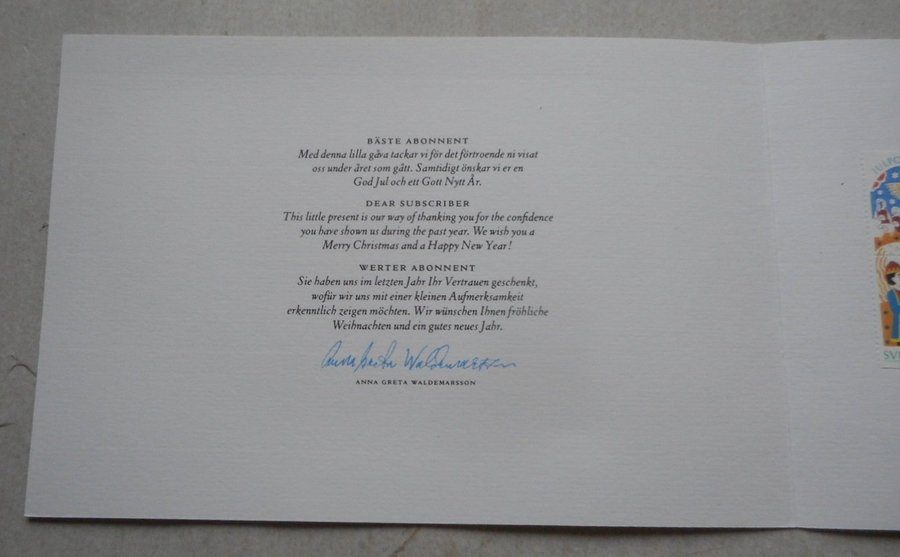 BÄSTE ABONNENT
Med denna lilla gåva tackar vi för det förtroende ni visat
oss under året som gått. Samtidigt önskar vi er en
God Jul och ett Gott Nytt År.
DEAR SUBSCRIBER
This little present is our way of thanking you for the confidence
you have shown us during the past year. We wish you a
Merry Christmas and a Happy New Year!
WERTER ABONNENT
Sie haben uns im letzten Jahr Ihr Vertrauen geschenkt,
wofür wir uns mit einer kleinen Aufmerksamkeit
erkenntlich zeigen möchten. Wir wünschen Ihnen fröhliche
Weihnachten und ein gutes neues Jahr.
Anna Greta Waldemarsson
ANNA GRETA WALDEMARSSON